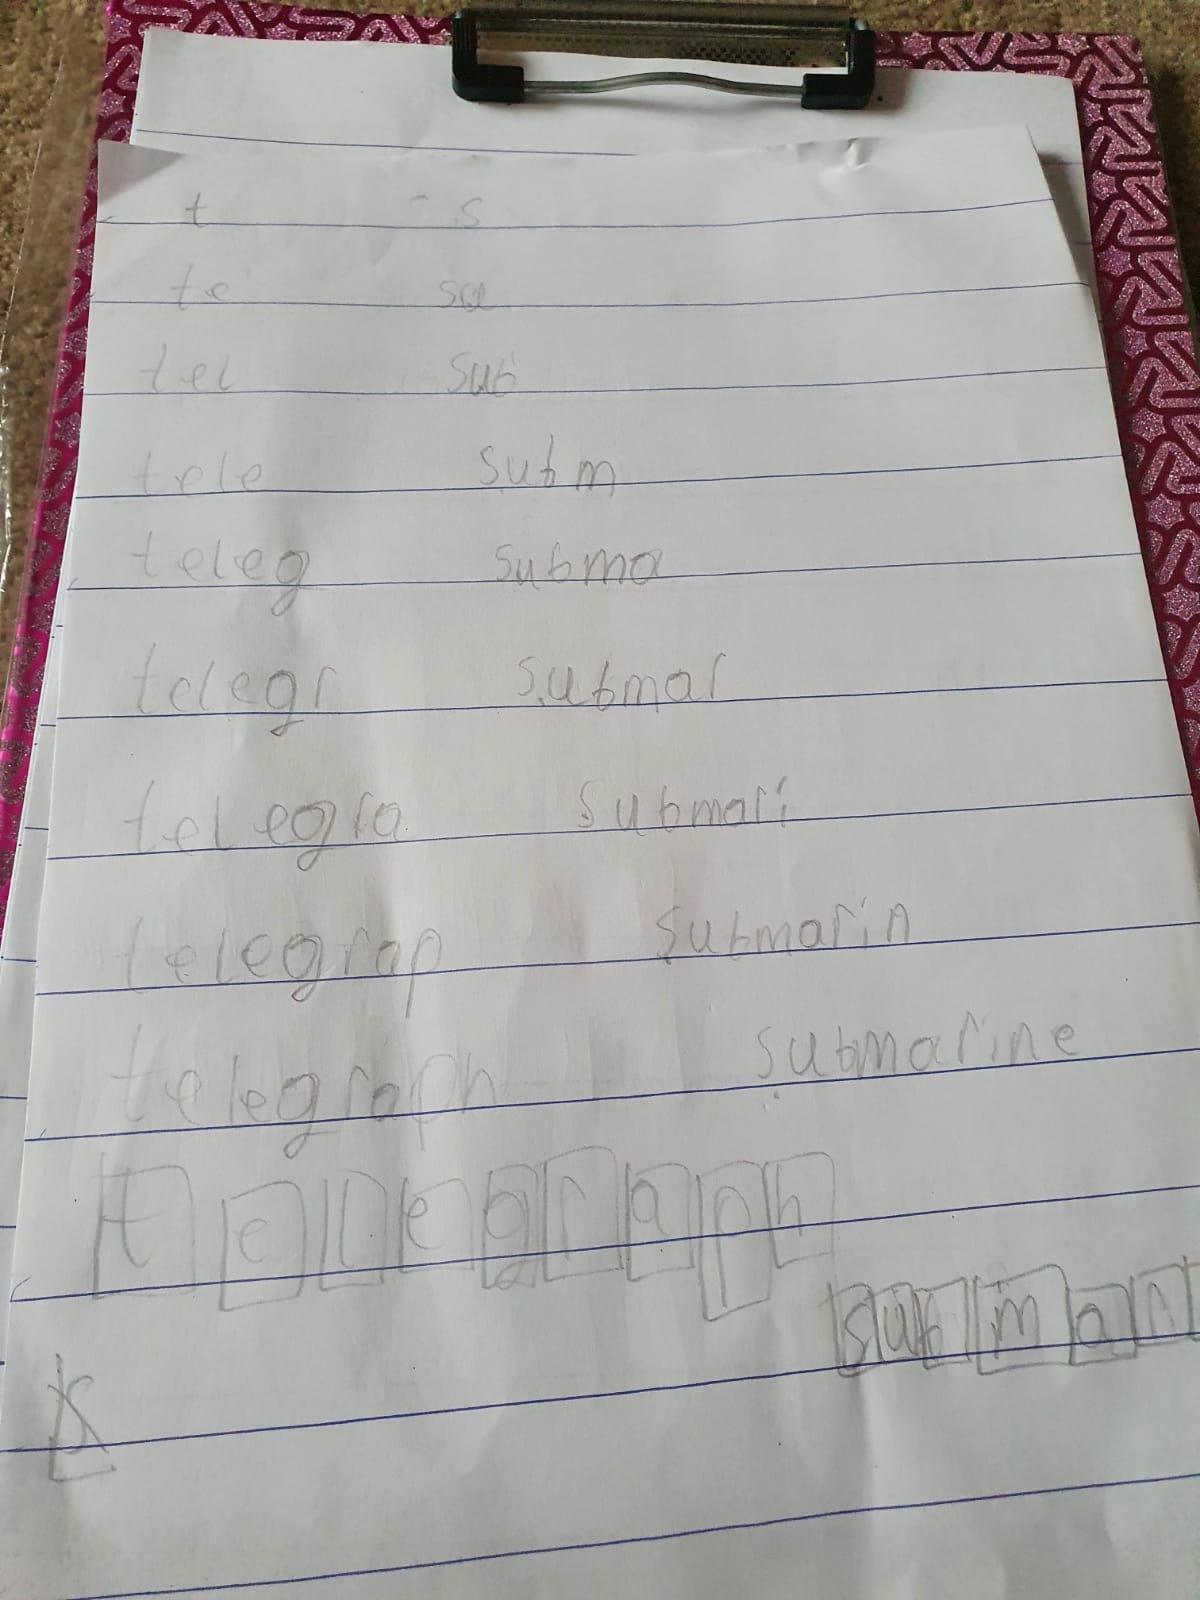 t s
te su
tel sub
tele subm
teleg subma
telegr submar
telegra submari
telegrap submarin
telegraph submarine
telegraph
submar
s